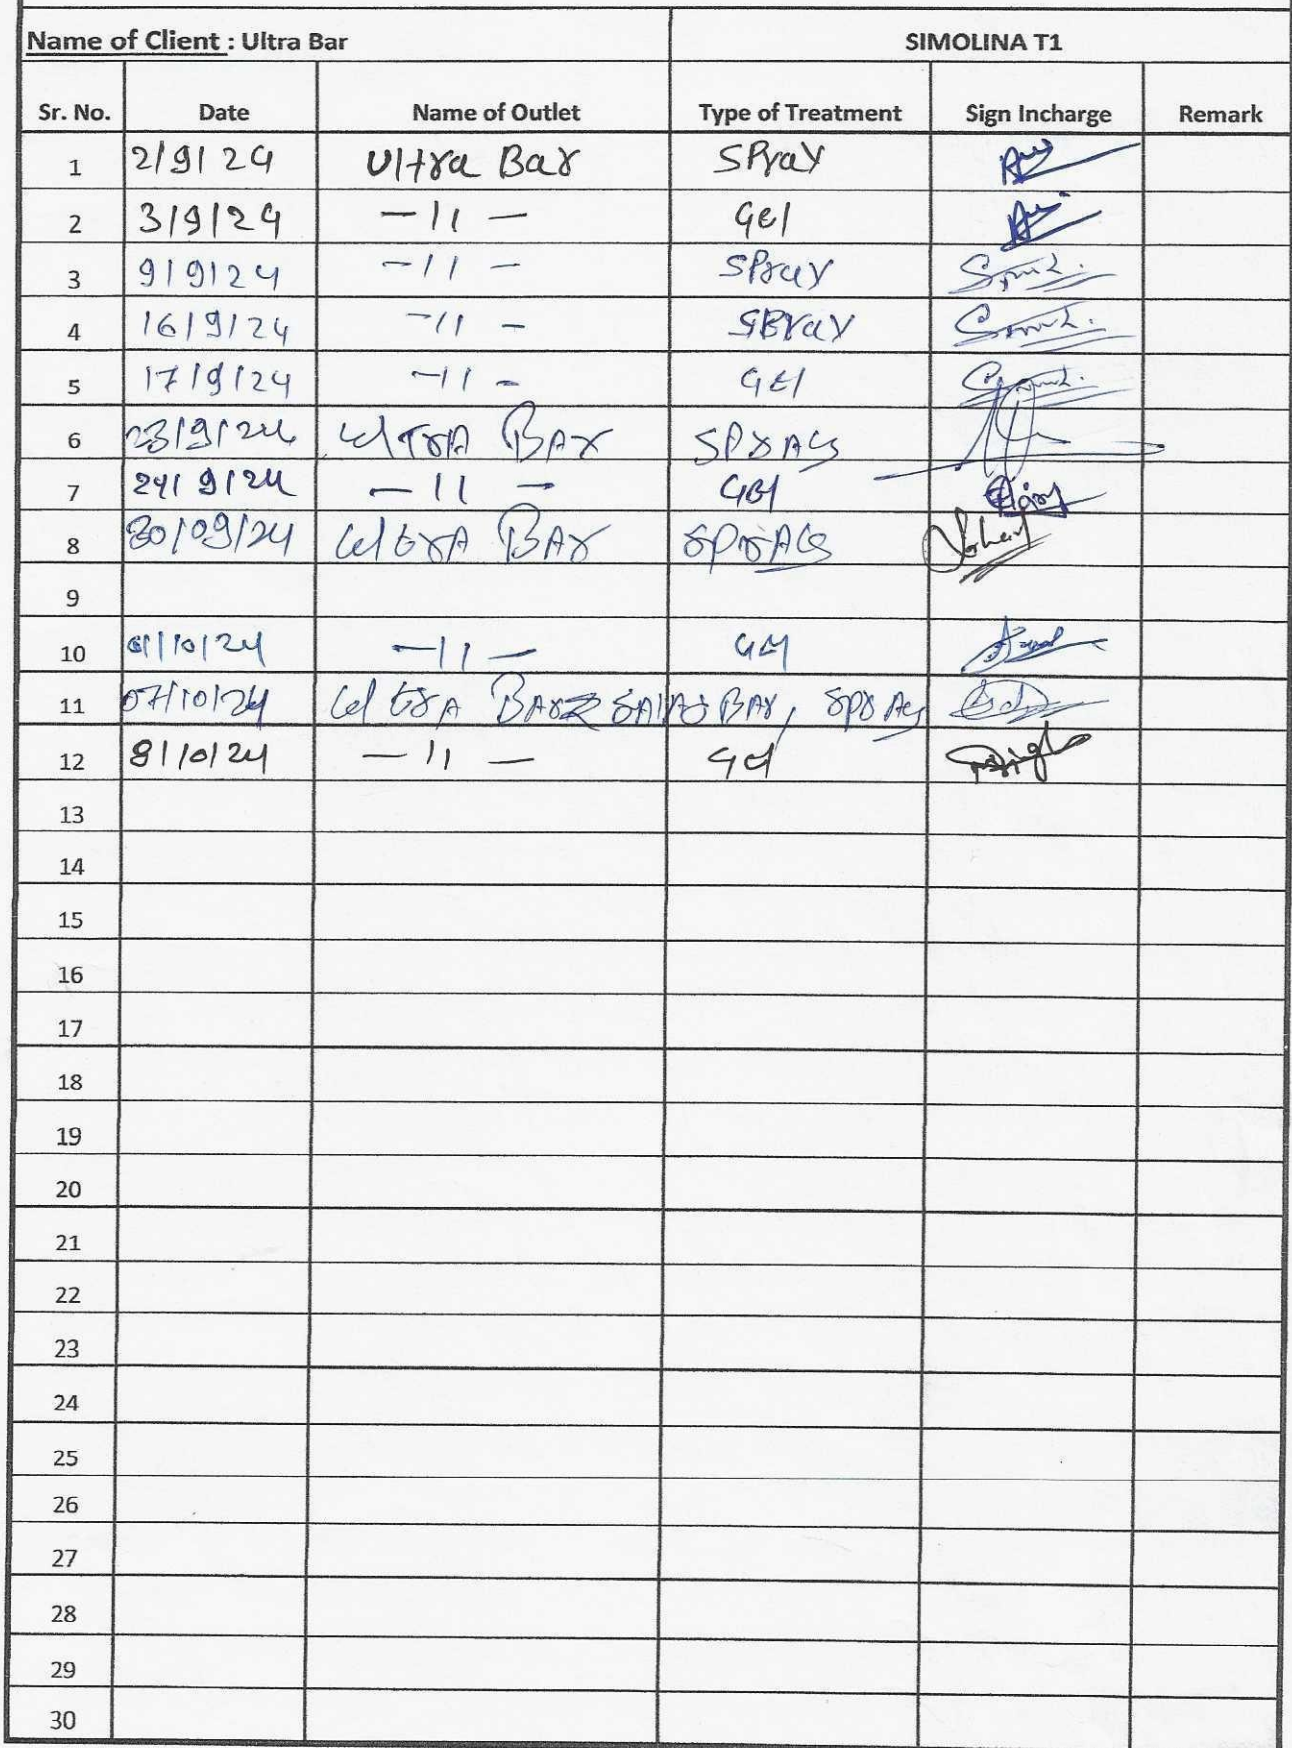 Name of Client : Ultra Bar SIMOLINA T1
Sr. No. Date Name of Outlet Type of Treatment Sign Incharge Remark
1 2/9/24 Ultra Bar SPraY
2 3/9/24 -11- Gel
3 9/9/24 -11- SPray
4 16/9/24 -11- SPraY
5 17/9/24 -11- GEl
6 23/9/24 UlTrA BAr SPrAy
7 24/9/24 -11- Gel
8 30/09/24 UltrA BAr SPrAy
9
10 01/10/24 -11- Gel
11 07/10/24 UltrA BAr BAr, SPrAy
12 8/10/24 -11- Gel
13
14
15
16
17
18
19
20
21
22
23
24
25
26
27
28
29
30